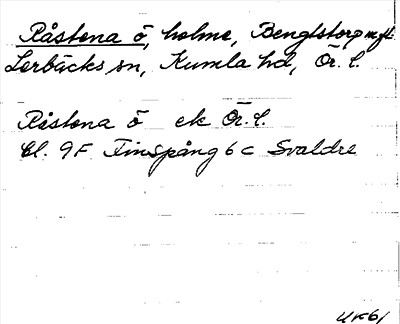 Råstena ö, holme, Bengtstorp m fl
Lerbäcks sn, Kumla hd, Ör. l.
Råstena ö ek Ör. l.
bl. 9F Finspång 6c Svaldre
UK61